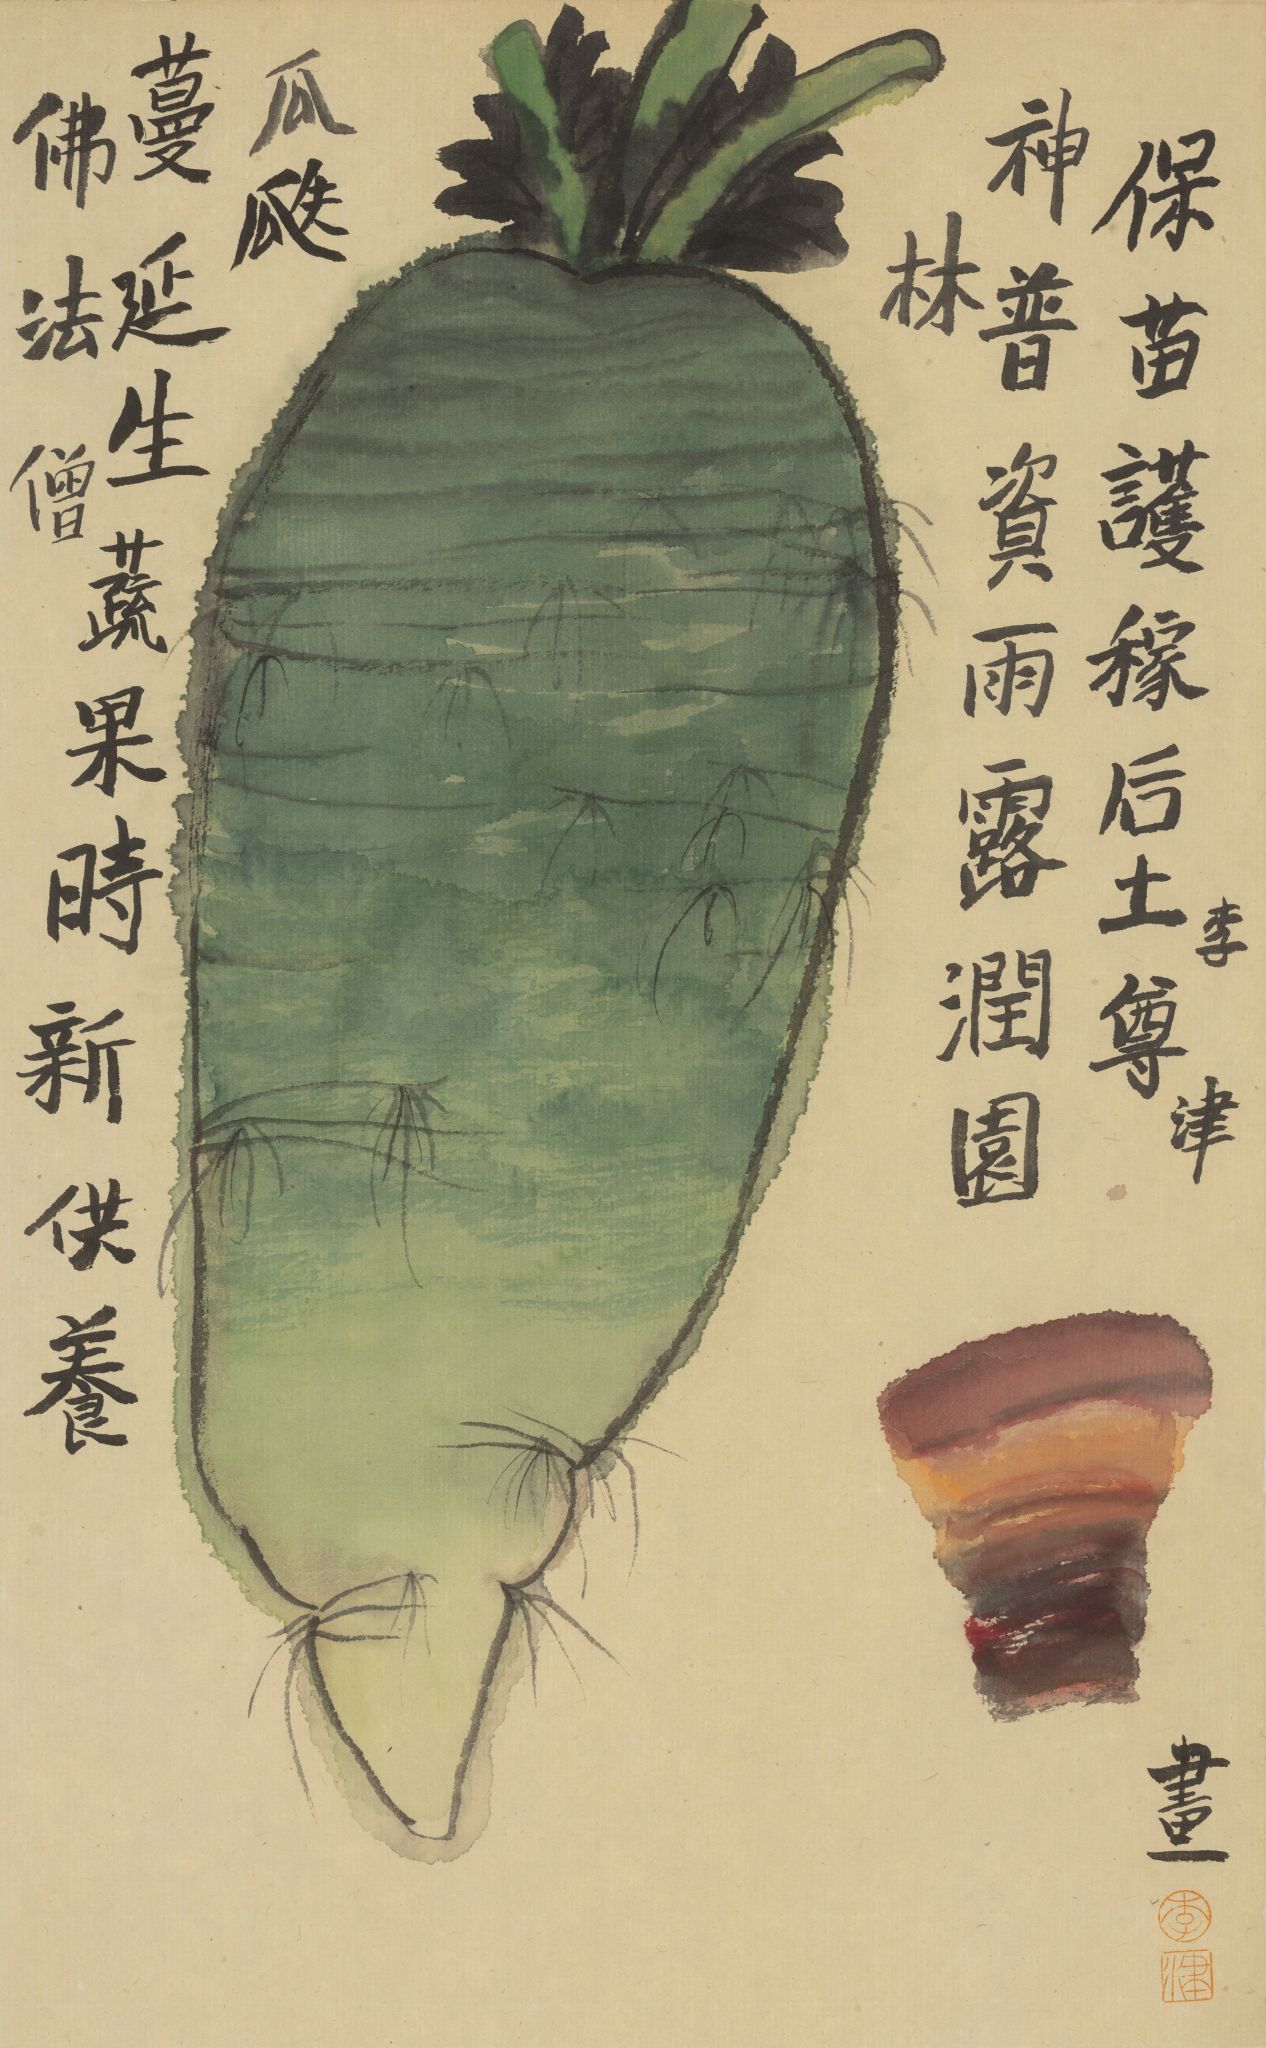 保苗護稼后土尊
神普資雨露潤園
林
瓜瓞
蔓延生蔬果時新供養
佛法僧
李津畫
李津